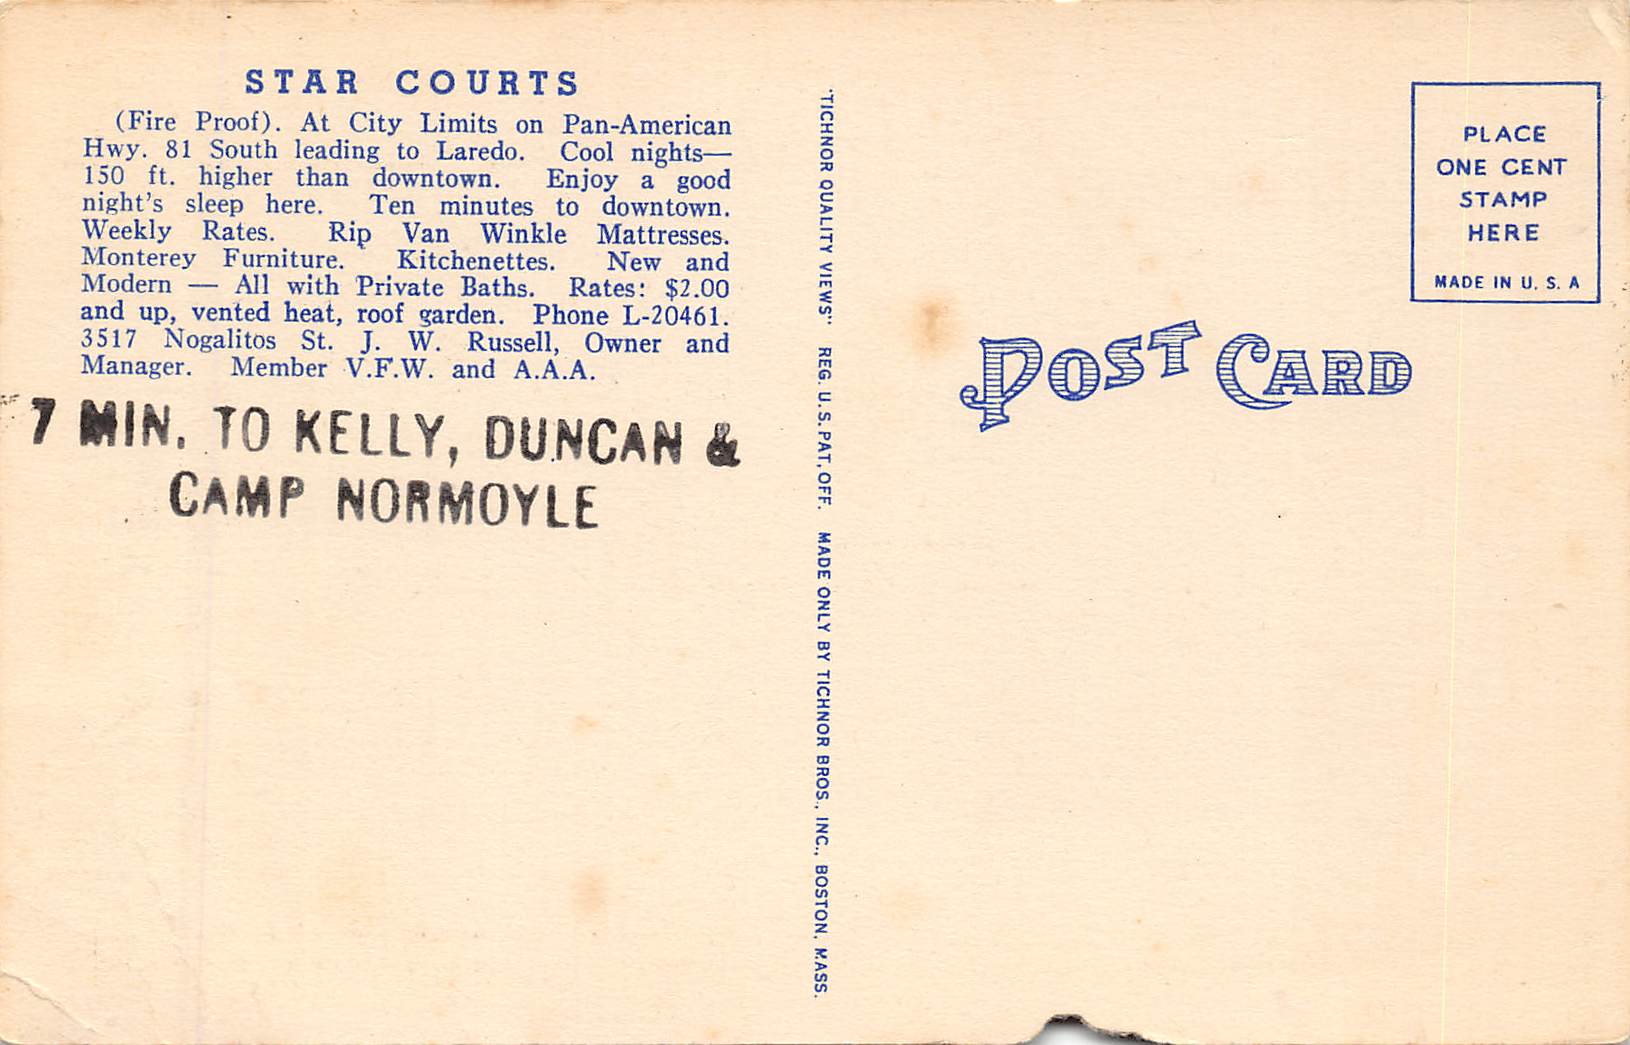 STAR COURTS
(Fire Proof). At City Limits on Pan-American
Hwy. 81 South leading to Laredo. Cool nights—
150 ft. higher than downtown. Enjoy a good
night's sleep here. Ten minutes to downtown.
Weekly Rates. Rip Van Winkle Mattresses.
Monterey Furniture. Kitchenettes. New and
Modern — All with Private Baths. Rates: $2.00
and up, vented heat, roof garden. Phone L-20461.
3517 Nogalitos St. J. W. Russell, Owner and
Manager. Member V.F.W. and A.A.A.
7 MIN. TO KELLY, DUNCAN &
CAMP NORMOYLE
"TICHNOR QUALITY VIEWS" REG. U.S. PAT. OFF. MADE ONLY BY TICHNOR BROS., INC., BOSTON, MASS.
PLACE
ONE CENT
STAMP
HERE
MADE IN U. S. A
POST CARD